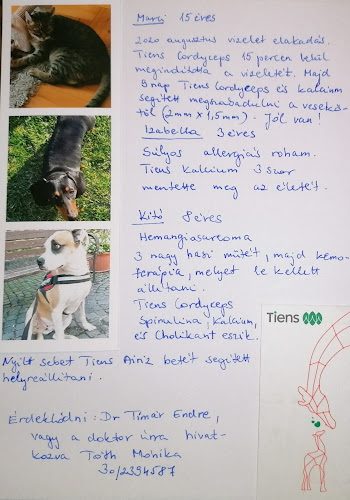 Marci 15 éves
2020 augusztus vizelet elakadás.
Tiens Cordyceps 15 percen belül
megindította a vizeletét. Majd
9 nap Tiens Cordyceps és kalcium
segített megszabadulni a vesekő-
től (2mm x 1,5mm). Jól van!
Izabella 3 éves
Súlyos allergiás roham.
Tiens Kalcium 3 szor
mentette meg az életét.
Kitó 8 éves
Hemangiosarcoma
3 nagy hasi műtét, majd kemo-
terápia, melyet le kellett
állítani.
Tiens Cordyceps
Spirulina, Kalcium,
és Cholikant eszik.
Nyílt sebet Tiens Airiz betét segített
helyreállítani.
Tiens
Érdeklődni: Dr Tímár Endre,
vagy a doktor úrra hivat-
kozva Tóth Mónika
30/2394587